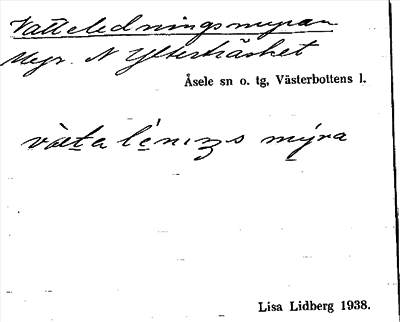 Vattuledningsmyran
Myr. N Ytterträsket
Åsele sn o. tg, Västerbottens l.
vàt̲a lé̲nıŋs mýra
Lisa Lidberg 1938.